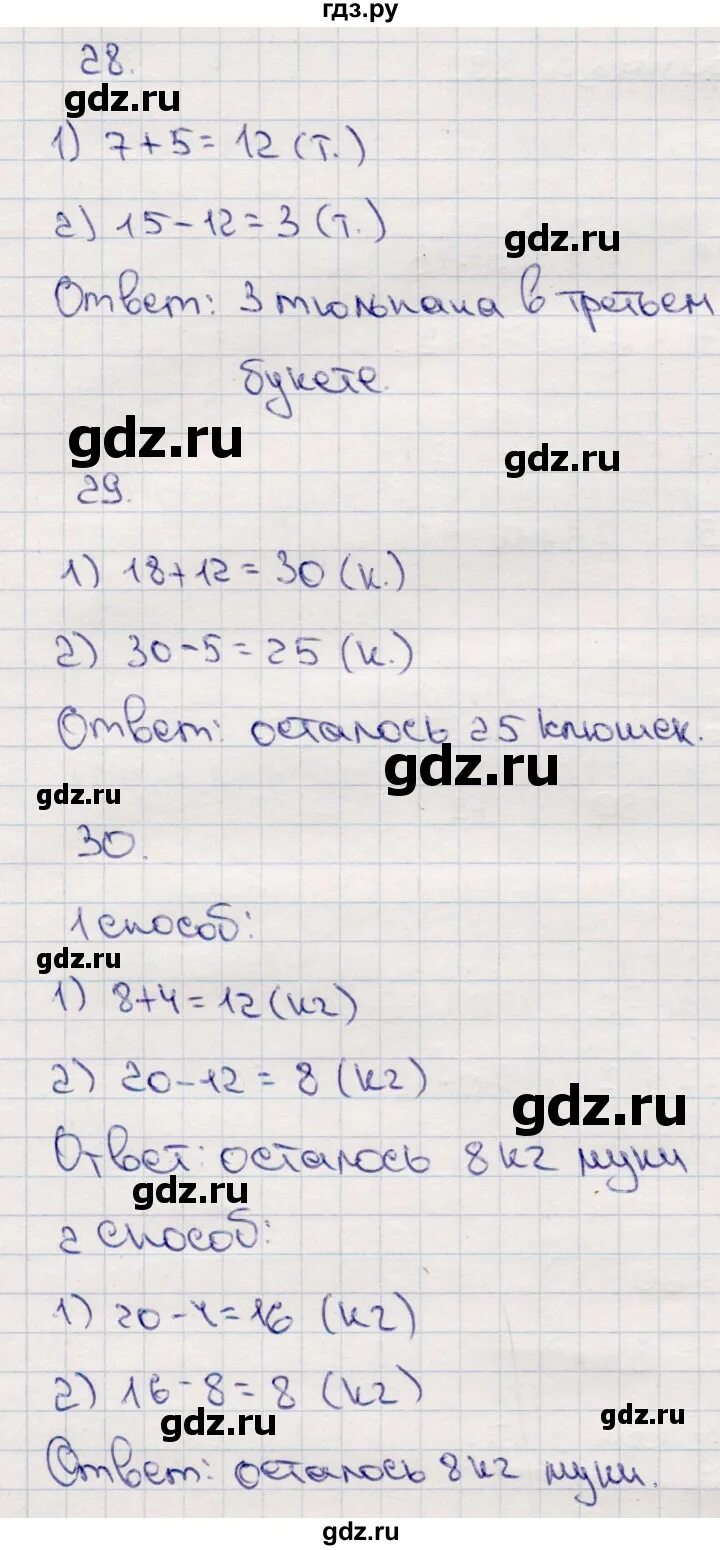 гдз.ру
28.
gdz.ru
1) 7+5=12 (т.)
2) 15-12=3 (т.)
gdz.ru
Ответ: 3 тюльпана в третьем
букете.
gdz.ru
gdz.ru
29.
1) 18+12=30 (к.)
2) 30-5=25 (к.)
Ответ: осталось 25 клюшек.
gdz.ru
gdz.ru
30.
1 способ:
gdz.ru
1) 8+4=12 (кг)
2) 20-12=8 (кг)
gdz.ru
Ответ: осталось 8 кг муки
gdz.ru
2 способ:
1) 20-4=16 (кг)
2) 16-8=8 (кг)
gdz.ru
gdz.ru
Ответ: осталось 8 кг муки.
gdz.ru